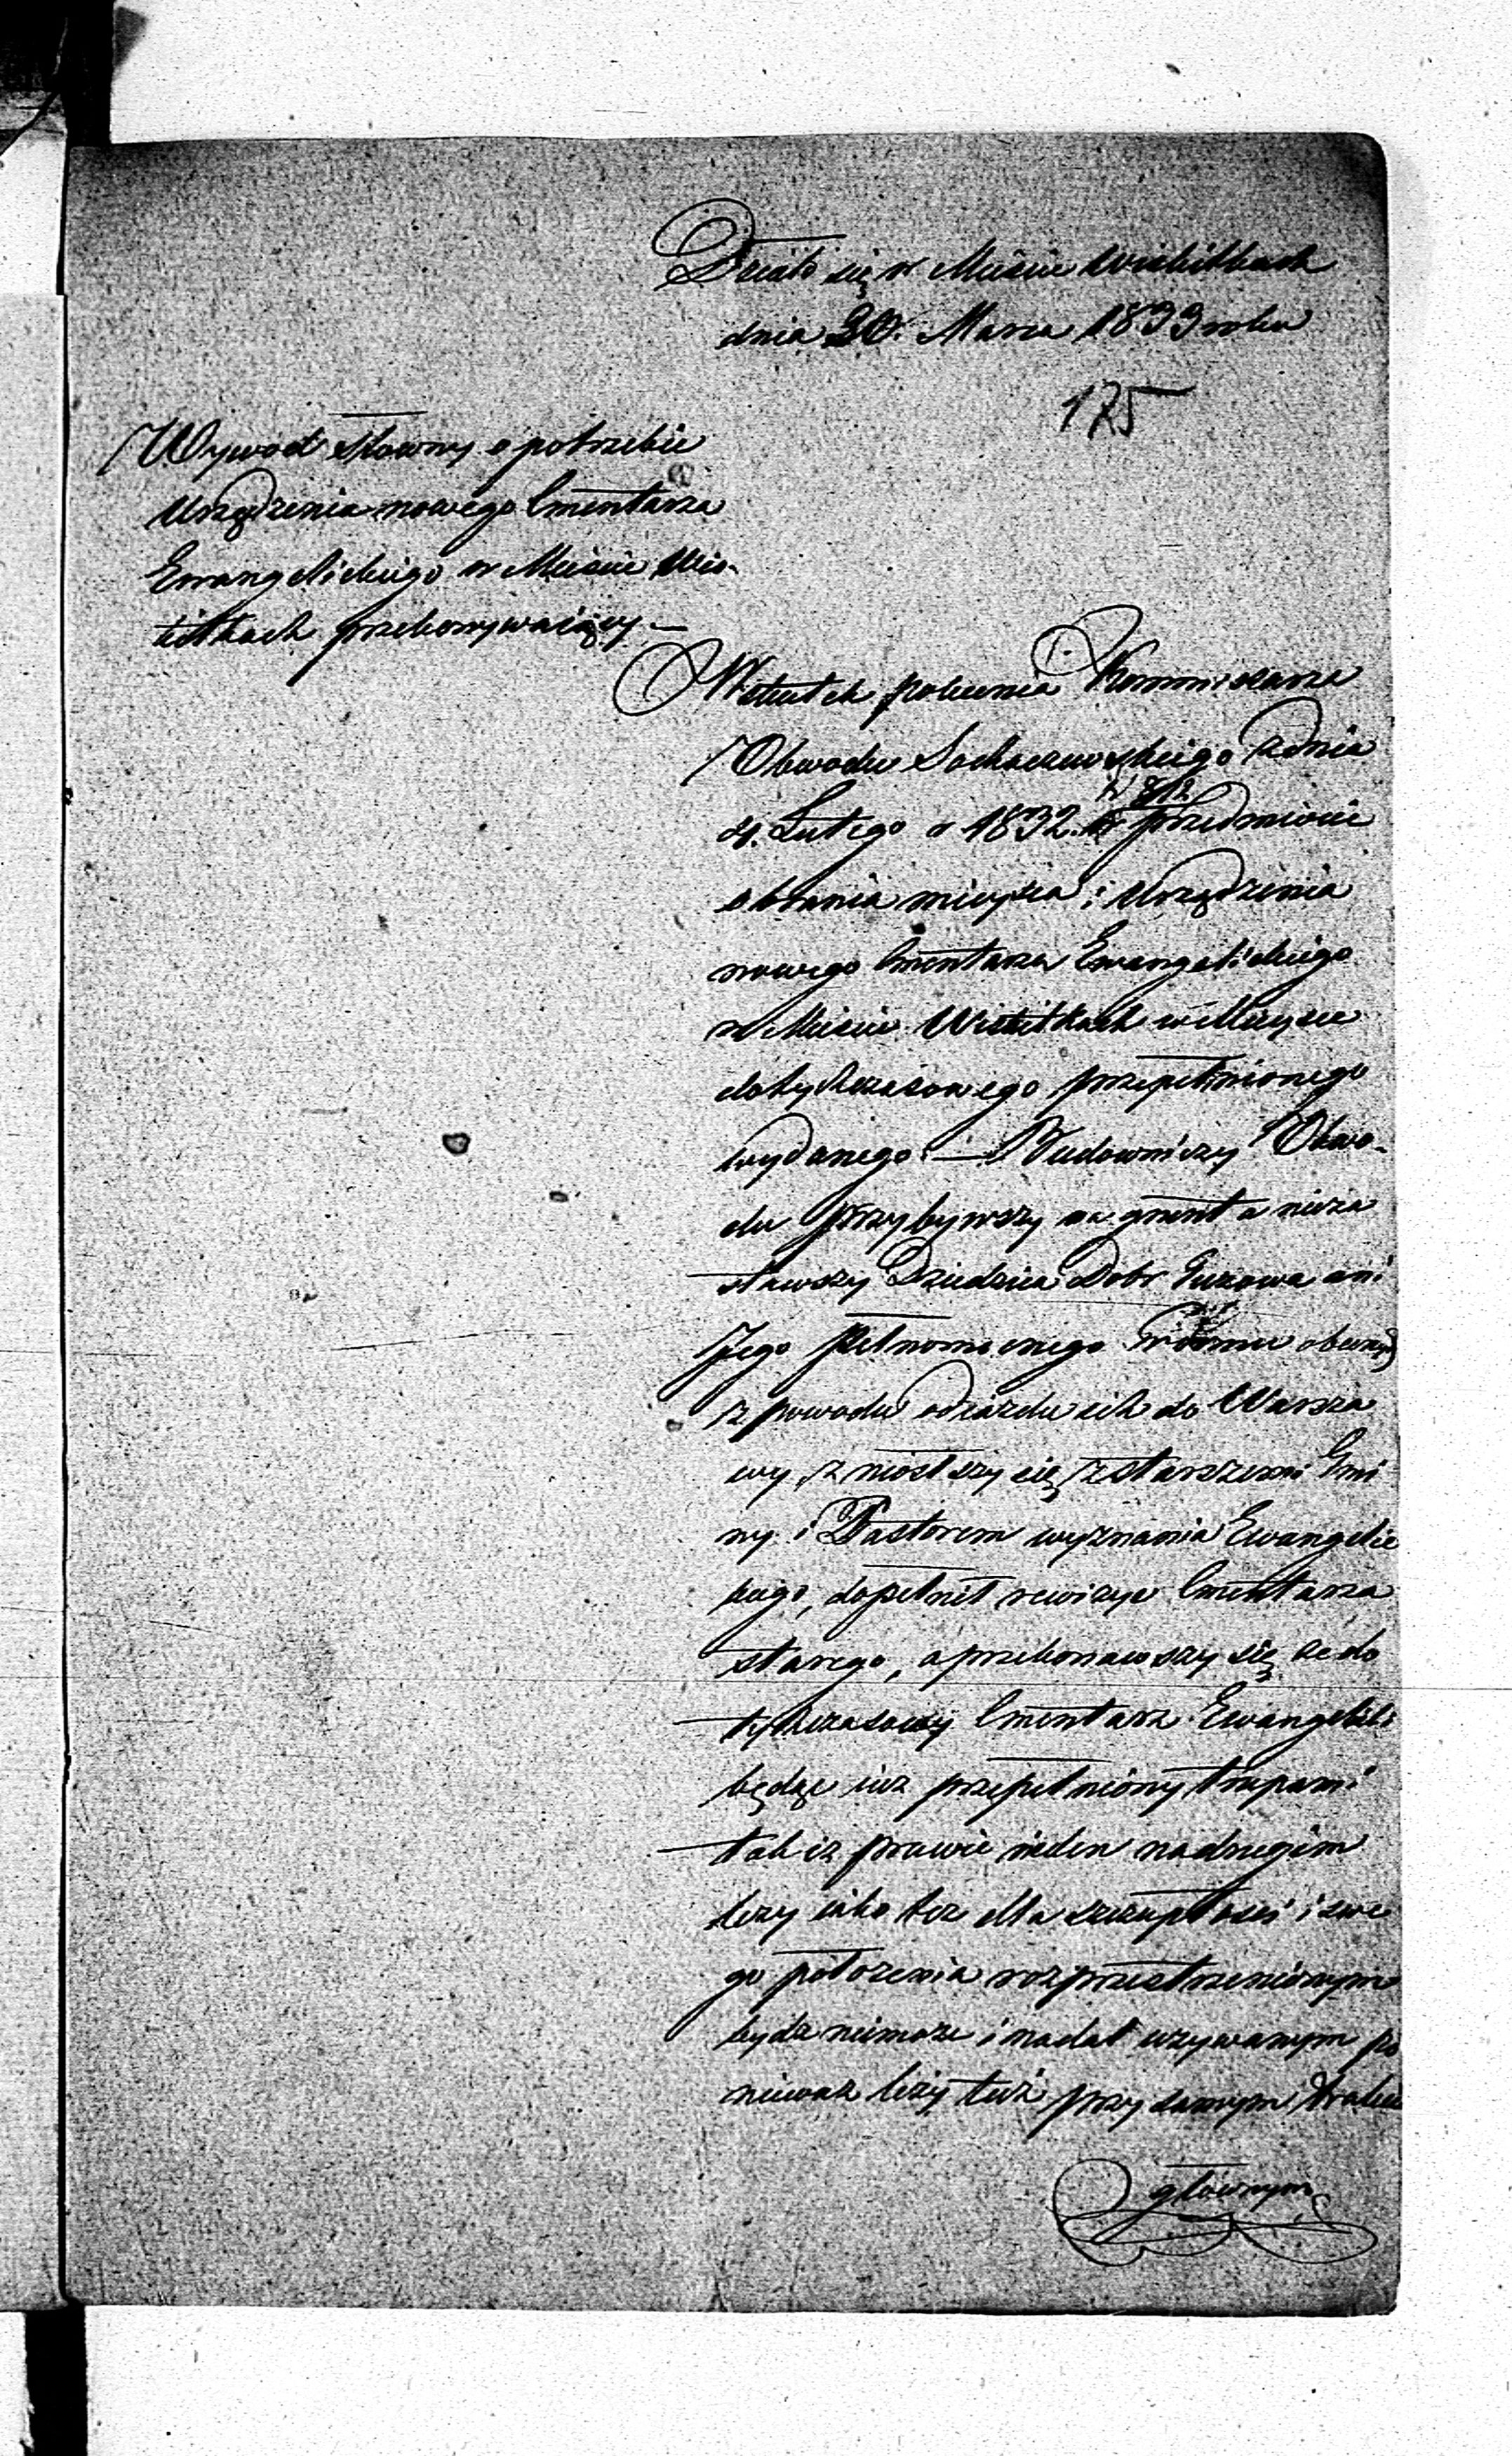 Działo się w Mieście Wiskitkach
dnia 20. Marca 1833 roku
175
Wywód słowny o potrzebie
Urządzenia nowego Cmentarza
Ewangelickiego w Mieście Wis-
kitkach przekonywaiący.—
W skutek polecenia Kommissarza
Obwodu Sochaczewskiego z dnia
4. Lutego r 1832. N 312 w przedmiocie
obrania mieysca i Urządzenia
nowego Cmentarza Ewangelickiego
w Mieście Wiskitkach w Mieysce
dotychczasowego przepełnionego
wydanego.— Budowniczy Obwo-
du przybywszy na grunt a nieza
stawszy Dziedzica Dobr Guzowa ani
Jego Pełnomocnego w domu
z powodu odiazdu ich do Warsza
wy, zniosłszy się z starszemi Gmi
ny i Pastorem wyznania Ewangelic
kiego, dopełnił rewizye Cmentarza
starego, a przekonawszy się że do
tychczasowy Cmentarz Ewangelicki
będąc iuż przepełniony trupami
tak iż prawie ieden na drugim
leży iako też dla szczupłości i swe
go położenia rozprzestrzenionym
bydź niemoże i nadal używanym po
nieważ leży tuż przy samym trakcie
głównym